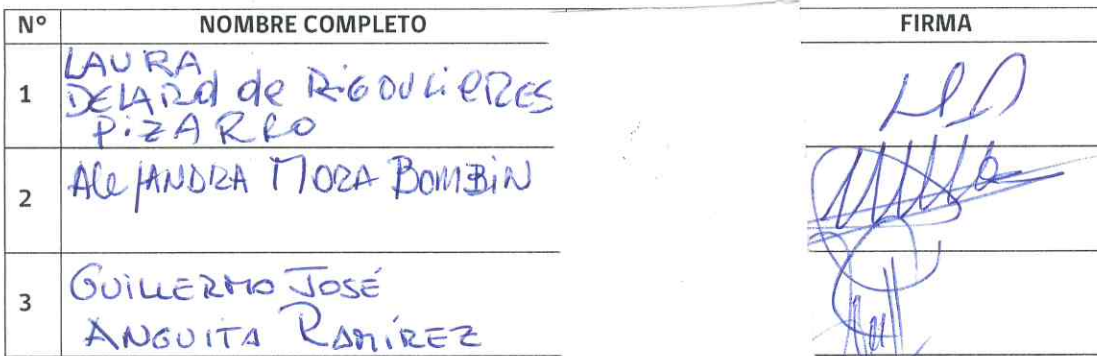 N° NOMBRE COMPLETO FIRMA
1 LAURA
DELARD de RIGOULIERES
PIZARRO
2 ALEJANDRA MORA BOMBIN
3 GUILLERMO JOSÉ
ANGUITA RAMÍREZ